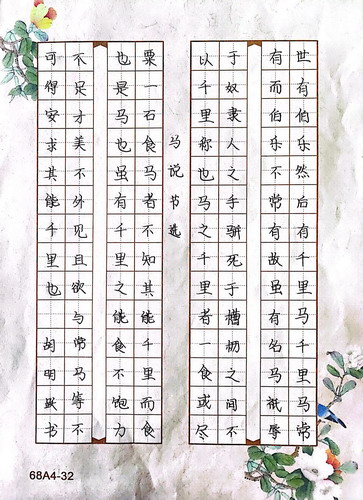 世有伯乐然后有千里马千里马常
有而伯乐不常有故虽有名马祇辱
于奴隶人之手骈死于槽枥之间不
以千里称也马之千里者一食或尽
马说书选
粟一石食马者不知其能千里而食
也是马也虽有千里之能食不饱力
不足才美不外见且欲与常马等不
可得安求其能千里也 胡明书
68A4-32